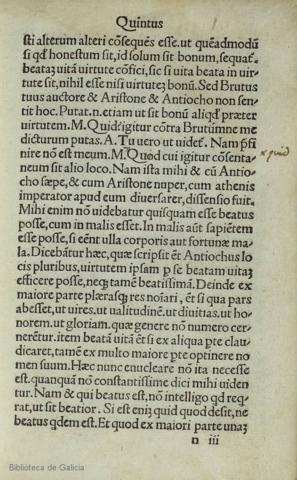 Quintus
sti alterum alteri cõsequẽs esse. ut quẽadmodũ
si qd' honestum sit, id solum sit bonum, sequat̃.
beataʒ uitã uirtute cõfici, sic si uita beata in uir-
tute sit, nihil esse nisi uirtuteʒ bonũ. Sed Brutus
tuus auctore & Aristone & Antiocho non sen-
tit hoc. Putat.n.etiam ut sit bonũ aliqd' præter
uirtutem. M. Quid? igitur cõtra Brutumne me
dicturum putas. A. Tu uero ut uidet̃. Nam p̃fi
nire nõ est meum. M. Quod cui igitur cõsenta-
neum sit alio loco. Nam ista mihi & cũ Antio-
cho sæpe, & cum Aristone nuper, cum athenis
imperator apud eum diuersarer, dissensio fuit.
Mihi enim nõ uidebatur quisquam esse beatus
posse, cum in malis esset. In malis aũt sapiẽtem
esse posse, si eẽnt ulla corporis aut fortunæ ma-
la. Dicebãtur hæc, quæ scripsit ẽt Antiochus lo
cis pluribus, uirtutem ipsam p se beatam uitaʒ
efficere posse, neq; tamẽ beatissimã. Deinde ex
maiore parte plærasq; res noĩari, ẽt si qua pars
abesset, ut uires. ut ualitudinẽ. ut diuitias. ut ho-
norem. ut gloriam. quæ genere nõ numero cer-
nerẽtur. item beatã uitã ẽt si ex aliqua pte clau
dicaret, tamẽ ex multo maiore pte optinere no
men suum. Hæc nunc enucleare nõ ita necesse
est. quanquã nõ constantissime dici mihi uiden
tur. Nam & qui beatus est, nõ intelligo qd req-
rat, ut sit beatior. Si est eniʒ quid quod desit, ne
beatus qdem est. Et quod ex maiori parte unaʒ
n iii
x quid
Biblioteca de Galicia